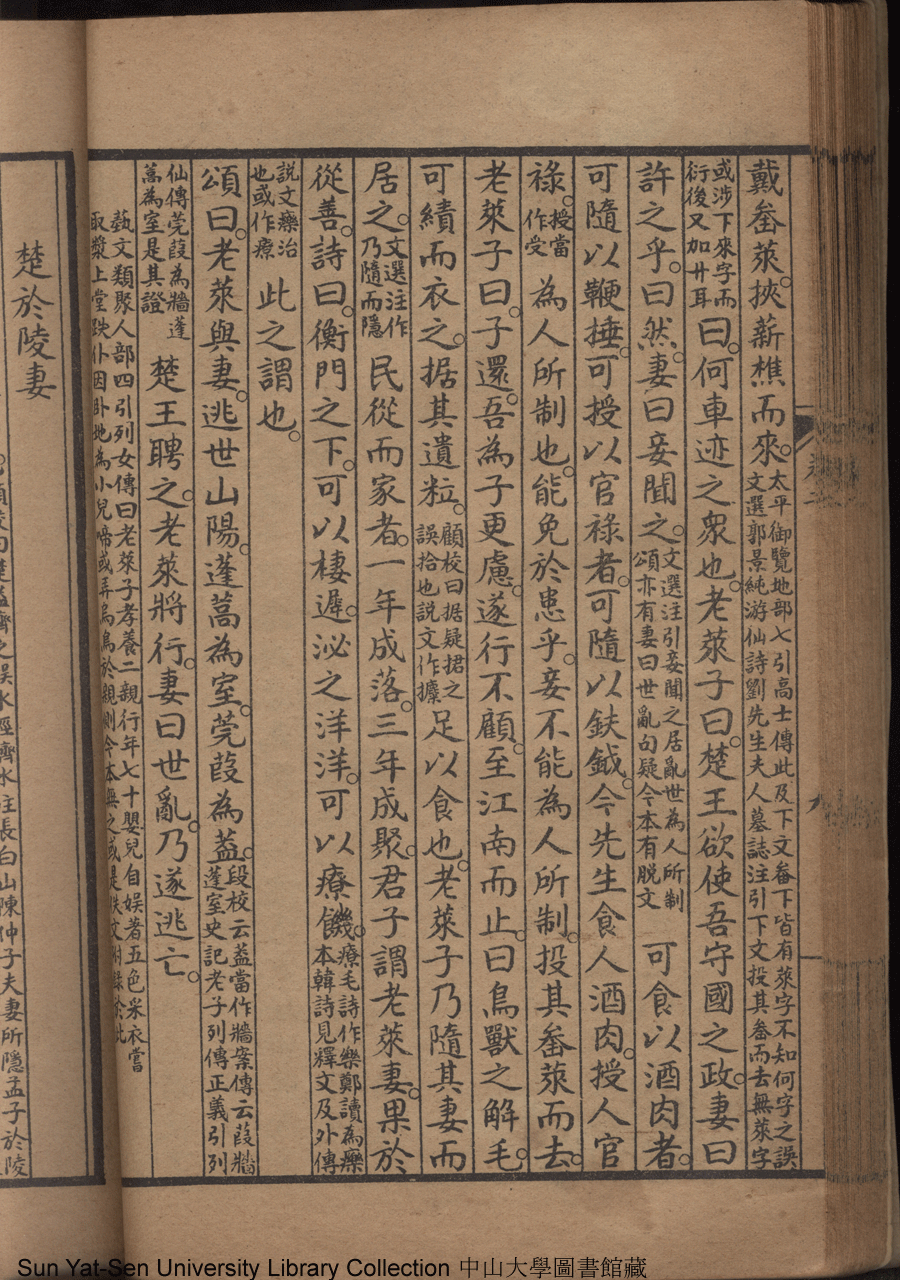 戴畚萊。挾薪樵而來。太平御覽地部七引高士傳此及下文畚下皆有萊字不知何字之誤文選郭景純游仙詩劉先生夫人墓誌注引下文投其畚而去無萊字
或涉下來字而衍後又加廾耳曰。何車迹之衆也。老萊子曰。楚王欲使吾守國之政。妻曰
許之乎。曰然。妻曰妾聞之。文選注引妾聞之居亂世為人所制頌亦有妻曰世亂句疑今本有脫文可食以酒肉者。
可隨以鞭捶。可授以官祿者。可隨以鈇鉞。今先生食人酒肉。授人官
祿。授當作受為人所制也。能免於患乎。妾不能為人所制。投其畚萊而去。
老萊子曰。子還。吾為子更慮。遂行不顧。至江南而止。曰鳥獸之解毛。
可績而衣之。据其遺粒。顧校曰据疑捃之誤拾也説文作攈足以食也。老萊子乃隨其妻而
居之。文選注作乃隨而隱民從而家者。一年成落。三年成聚。君子謂老萊妻。果於
從善。詩曰。衡門之下。可以棲遲。泌之洋洋。可以療饑。療毛詩作樂鄭讀為𤻲本韓詩見釋文及外傳
説文𤻲治也或作療此之謂也。
頌曰。老萊與妻。逃世山陽。蓬蒿為室。莞葭為蓋。段校云蓋當作牆案傳云葭牆蓬室史記老子列傳正義引列
仙傳莞葭為牆蓬蒿為室是其證楚王聘之。老萊將行。妻曰世亂。乃遂逃亡。
藝文類聚人部四引列女傳曰老萊子孝養二親行年七十嬰兒自娱著五色采衣嘗
取漿上堂跌仆因卧地為小兒啼或弄烏鳥於親側今本無之或是佚文附録於此
楚於陵妻
水經濟水注長白山陳仲子夫妻所隱孟子於陵